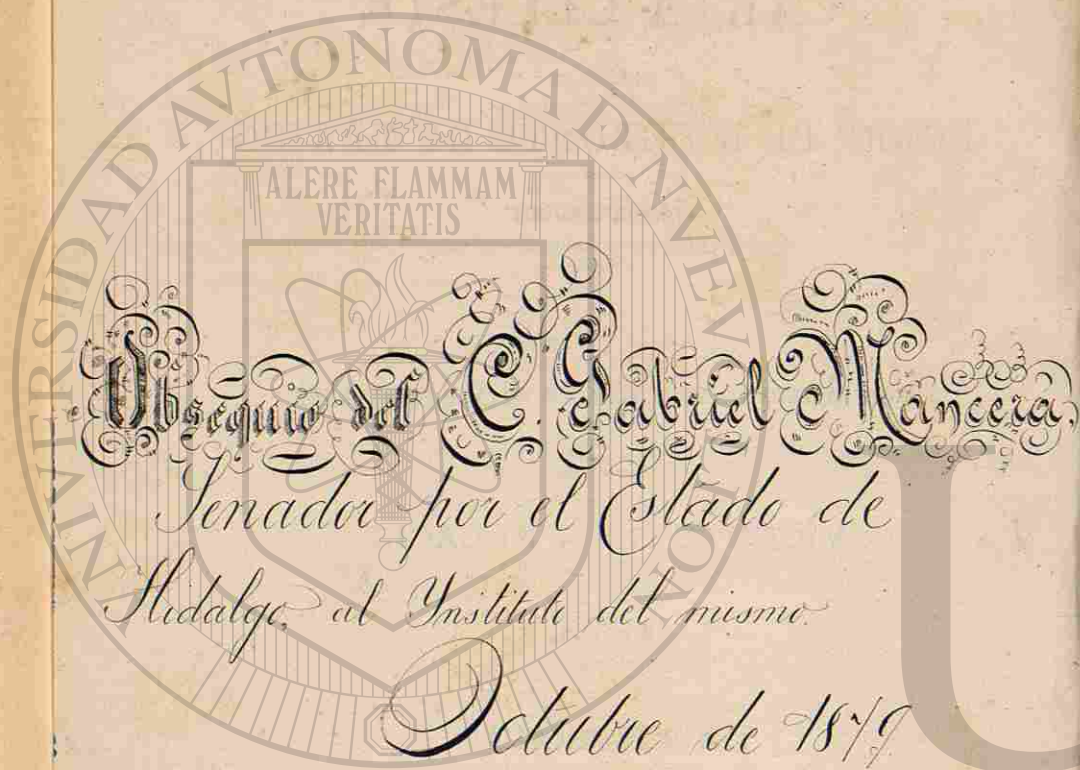 UNIVERSIDAD AVTONOMA D NVEVO
ALERE FLAMMAM
VERITATIS
Obsequio del C. Gabriel Mancera,
Senador por el Estado de
Hidalgo, al Ynstituto del mismo.
Octubre de 1879
U